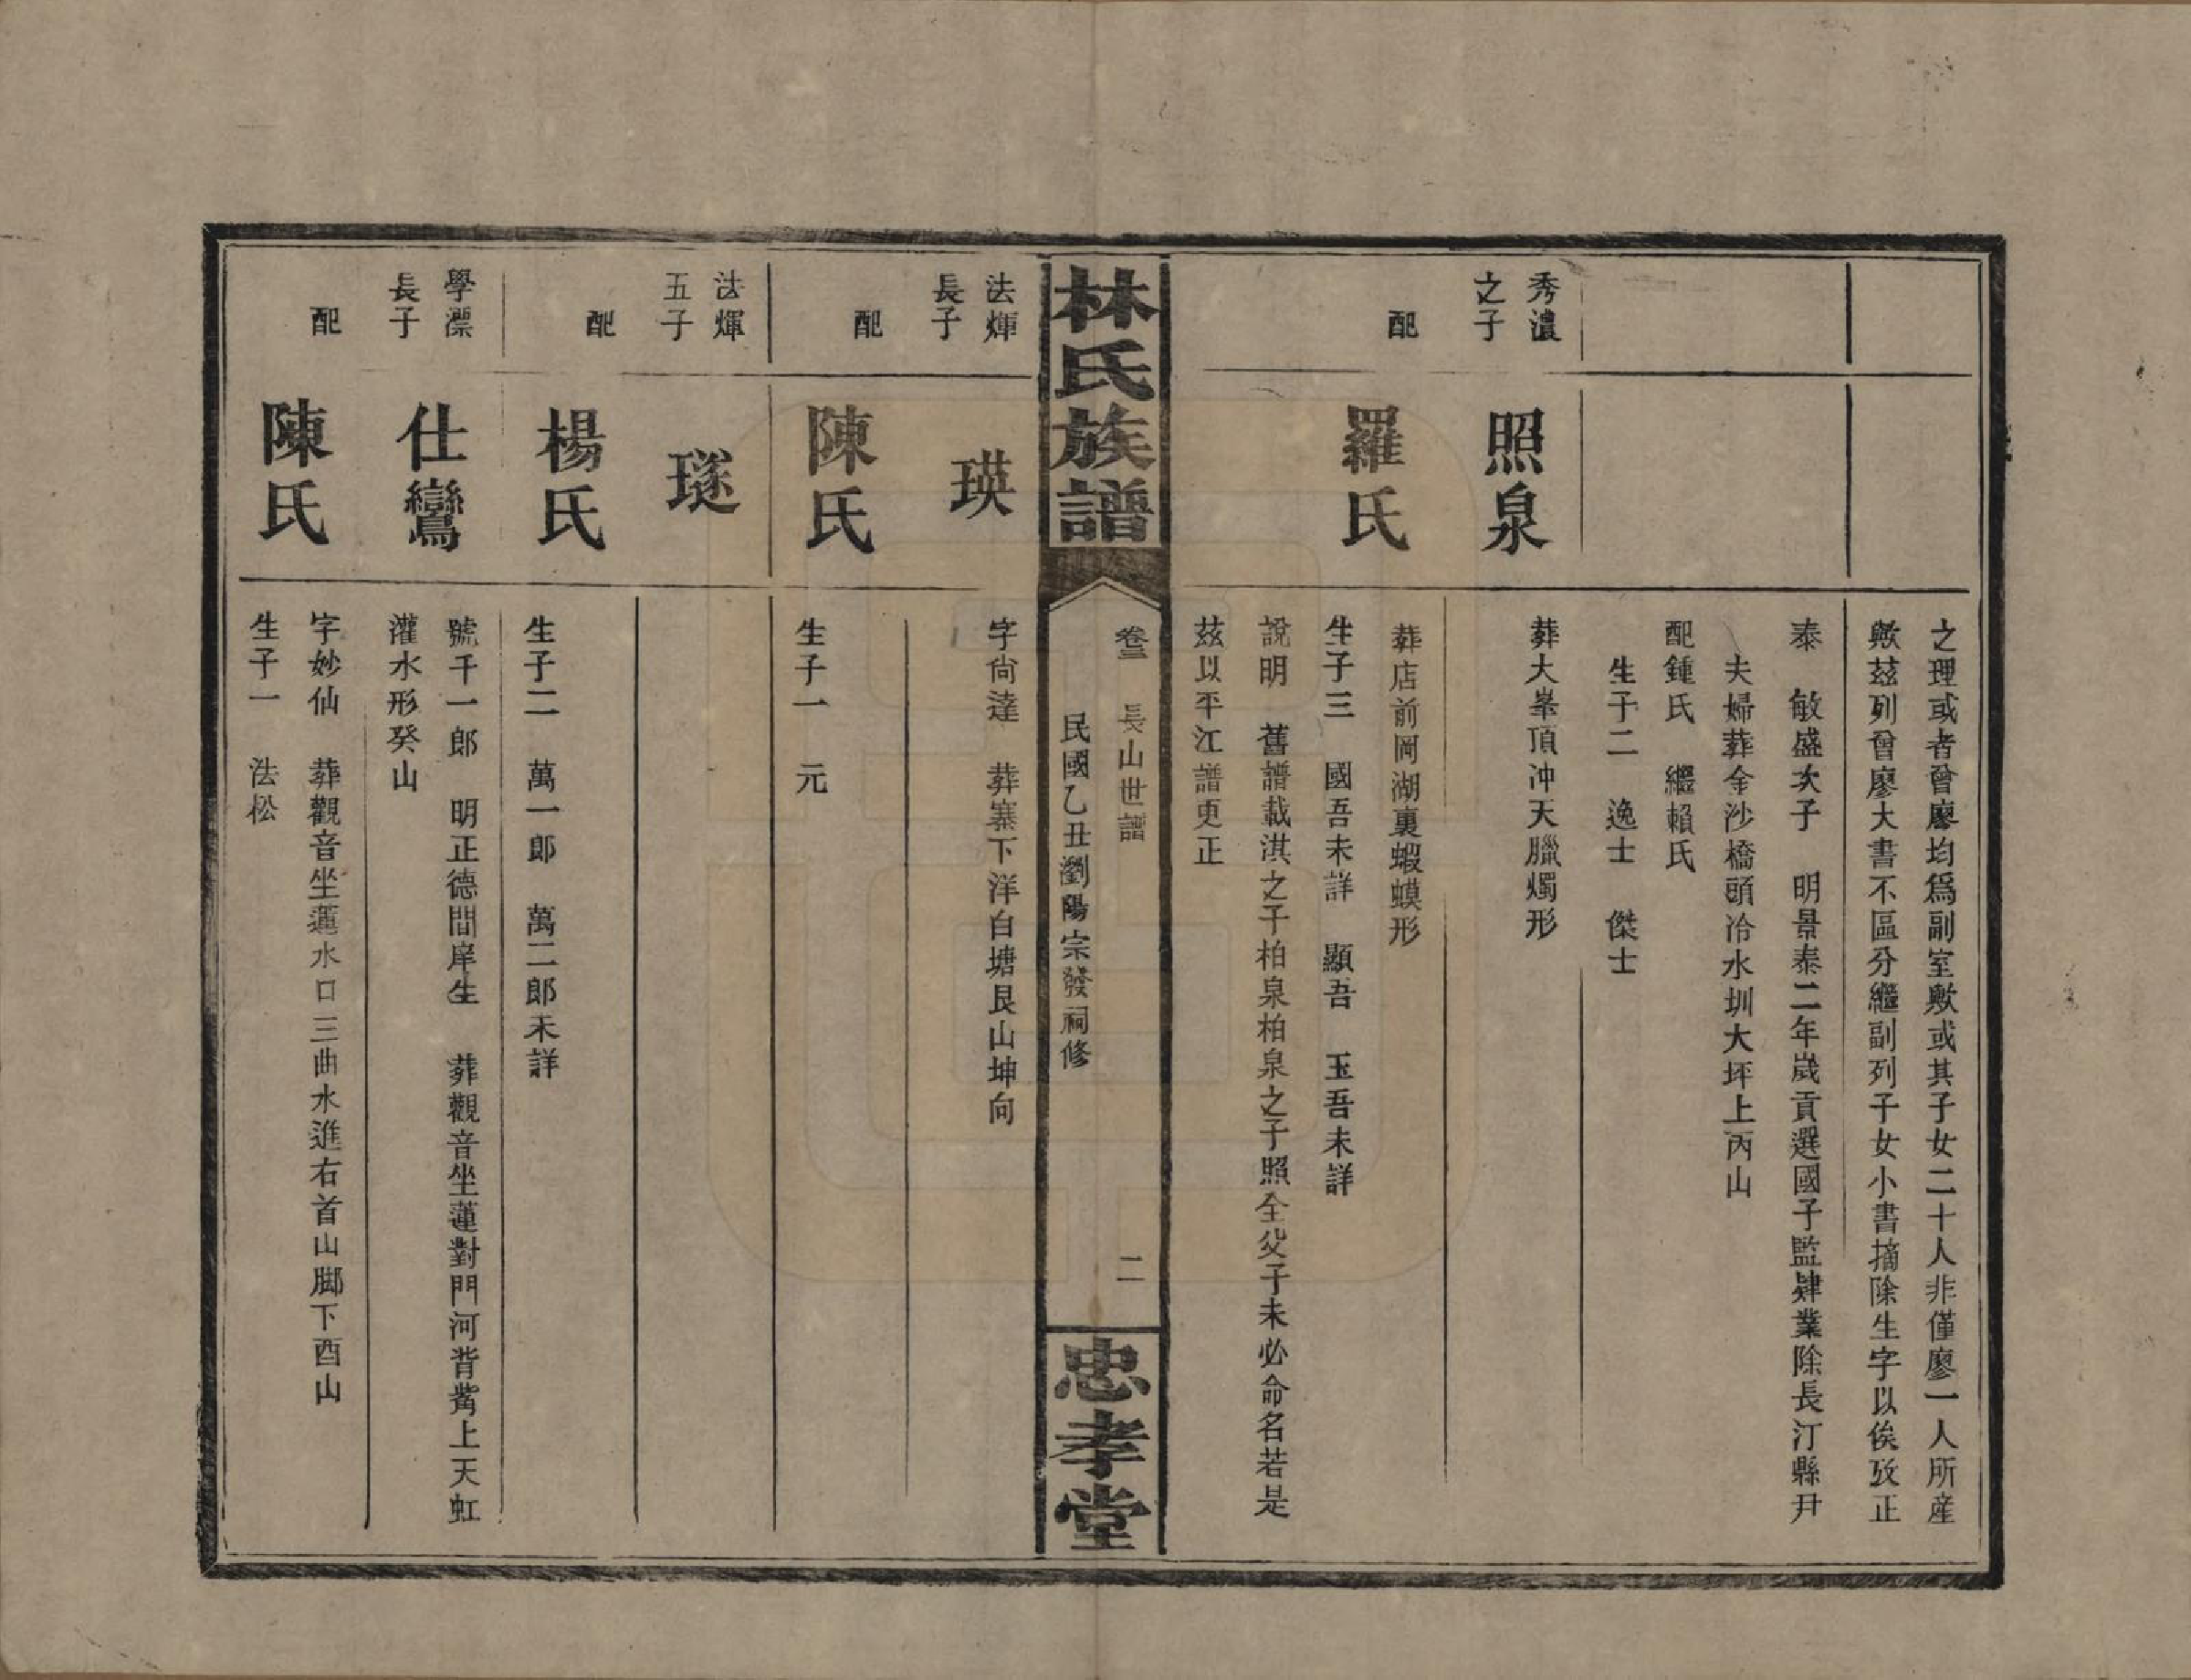 之理或者曾廖均爲副室歟或其子女二十人非僅廖一人所産
歟茲列曾廖大書不區分繼副列子女小書摘除生字以俟攷正
泰　敏盛次子　明景泰二年歲貢選國子監肄業除長汀縣尹
夫婦葬金沙橋頭冷水圳大坪上丙山
配鍾氏　繼賴氏
生子二　逸士　傑士
秀濃
之子
照泉
葬大峯頂冲天臘燭形
配
羅氏
葬店前岡湖裏蝦蟆形
生子三　國吾未詳　顯吾　玉吾未詳
說明　舊譜載淇之子柏泉柏泉之子照全父子未必命名若是
茲以平江譜更正
林氏族譜
卷三　長山世譜
二
民國乙丑瀏陽宗發祠修
忠孝堂
法煇
長子
瑛
字尙達　葬寨下洋白塘艮山坤向
配
陳氏
生子一　元
法煇
五子
璲
配
楊氏
生子二　萬一郎　萬二郎未詳
學漂
長子
仕鸞
號千一郎　明正德間庠生　葬觀音坐蓮對門河背嵴上天虹
灌水形癸山
配
陳氏
字妙仙　葬觀音坐蓮水口三曲水進右首山脚下酉山
生子一　法松